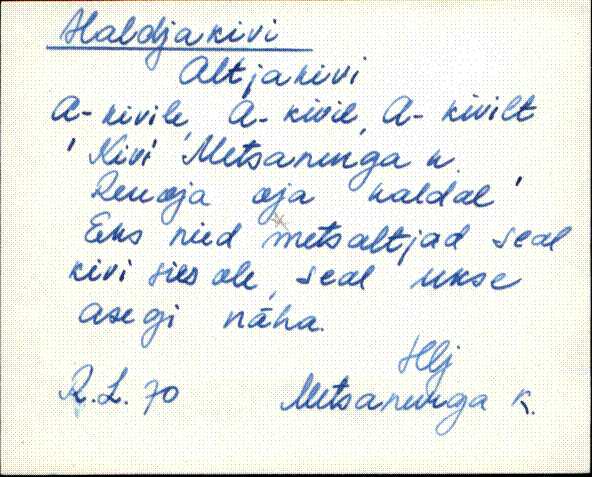 Haldjakivi
Altjakivi
A-kivile, A-kivil, A-kivilt
'Kivi Metsanurga k.
Reuoja oja kaldal'
Eks nied metsaltjad seal
kivi sies ole, seal ukse
asegi näha.
Hlj
R.L. 70 Metsanurga k.